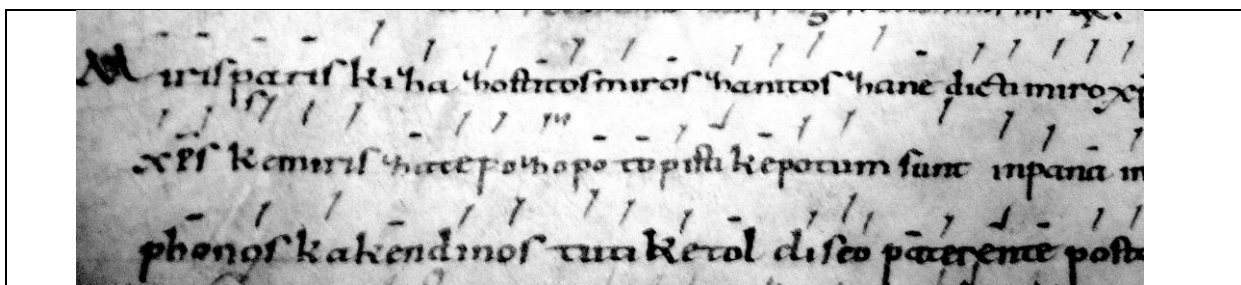 Mirispatis kiha hostitosmiros hanitos hane dicti miro
xp̄s kemiris hatepohopo topisti kepotum sunt inpana in
phonos kakendinos tuti ketol diseo paterente